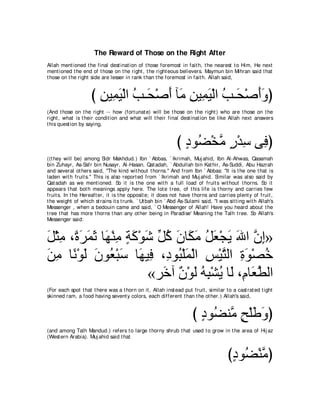 The Reward of Those on the Right After
Allah mentioned the final destination of those foremost in faith, the nearest to Him, He next
mentioned the end of those on the right, the righteous believers. Maymun bin Mihran said that
those on the right side are lesser in rank than the foremost in faith. Allah said,
(وَأَصْحَـبُ الْيَمِينِ مَآ أَصْحَـبُ الْيَمِينِ )
(And those on the right -- how (fortunate) will be those on the right) who are those on the
right, what is their condition and what will their final destination be like Allah next answers
this question by saying,
(فِى سِدْرٍ مَّخْضُودٍ )
((they will be) among Sidr Makhdud.) Ibn `Abbas, `Ikrimah, Mujahid, Ibn Al-Ahwas, Qasamah
bin Zuhayr, As-Safr bin Nusayr, Al-Hasan, Qatadah, `Abdullah bin Kathir, As-Suddi, Abu Hazrah
and several others said, "The kind without thorns." And from Ibn `Abbas: "It is the one that is
laden with fruits." This is also reported from `Ikrimah and Mujahid. Similar was also said by
Qatadah as we mentioned. So it is the one with a full load of fruits without thorns. So it
appears that both meanings apply here. The lote tree, of this life is thorny and carries few
fruits. In the Hereafter, it is the opposite; it does not have thorns and carries plenty of fruit,
the weight of which strains its trunk. `Utbah bin `Abd As-Sulami said, "I was sitting with Allah's
Messenger , when a bedouin came and said, `O Messenger of Allah! Have you heard about the
tree that has more thorns than any other being in Paradise' Meaning the Talh tree. So Allah's
Messenger said:
«إِنَّ اللهَ يَجْعَلُ مَكَانَ كُلِّ شَوْكَةٍ مِنْهَا ثَمَرَةً، مِثْلَ
خُصْوَةِ التَّيْسِ الْمَلْبُودِ، فِيهَا سَبْعُونَ لَوْنًا مِنَ
الطَّعَامِ، لَا يُشْبِهُ لَوْنٌ آخَرَ»
(For each spot that there was a thorn on it, Allah instead put fruit, similar to a castrated tight
skinned ram, a food having seventy colors, each different than the other.) Allah's said,
(وَطَلْحٍ مَّنضُودٍ )
(and among Talh Mandud.) refers to large thorny shrub that used to grow in the area of Hijaz
(Western Arabia). Mujahid said that
(مَّنضُودٍ)